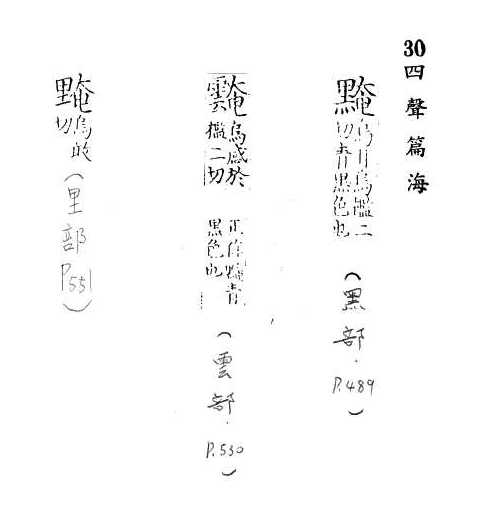 30四聲篇海
黤
烏烏檻二
切青黑色也
(黑部.P.489)
烏感於
檻二切
正作黤青
黑色也
(雲部.P.530)
烏
切
(里部P.551)